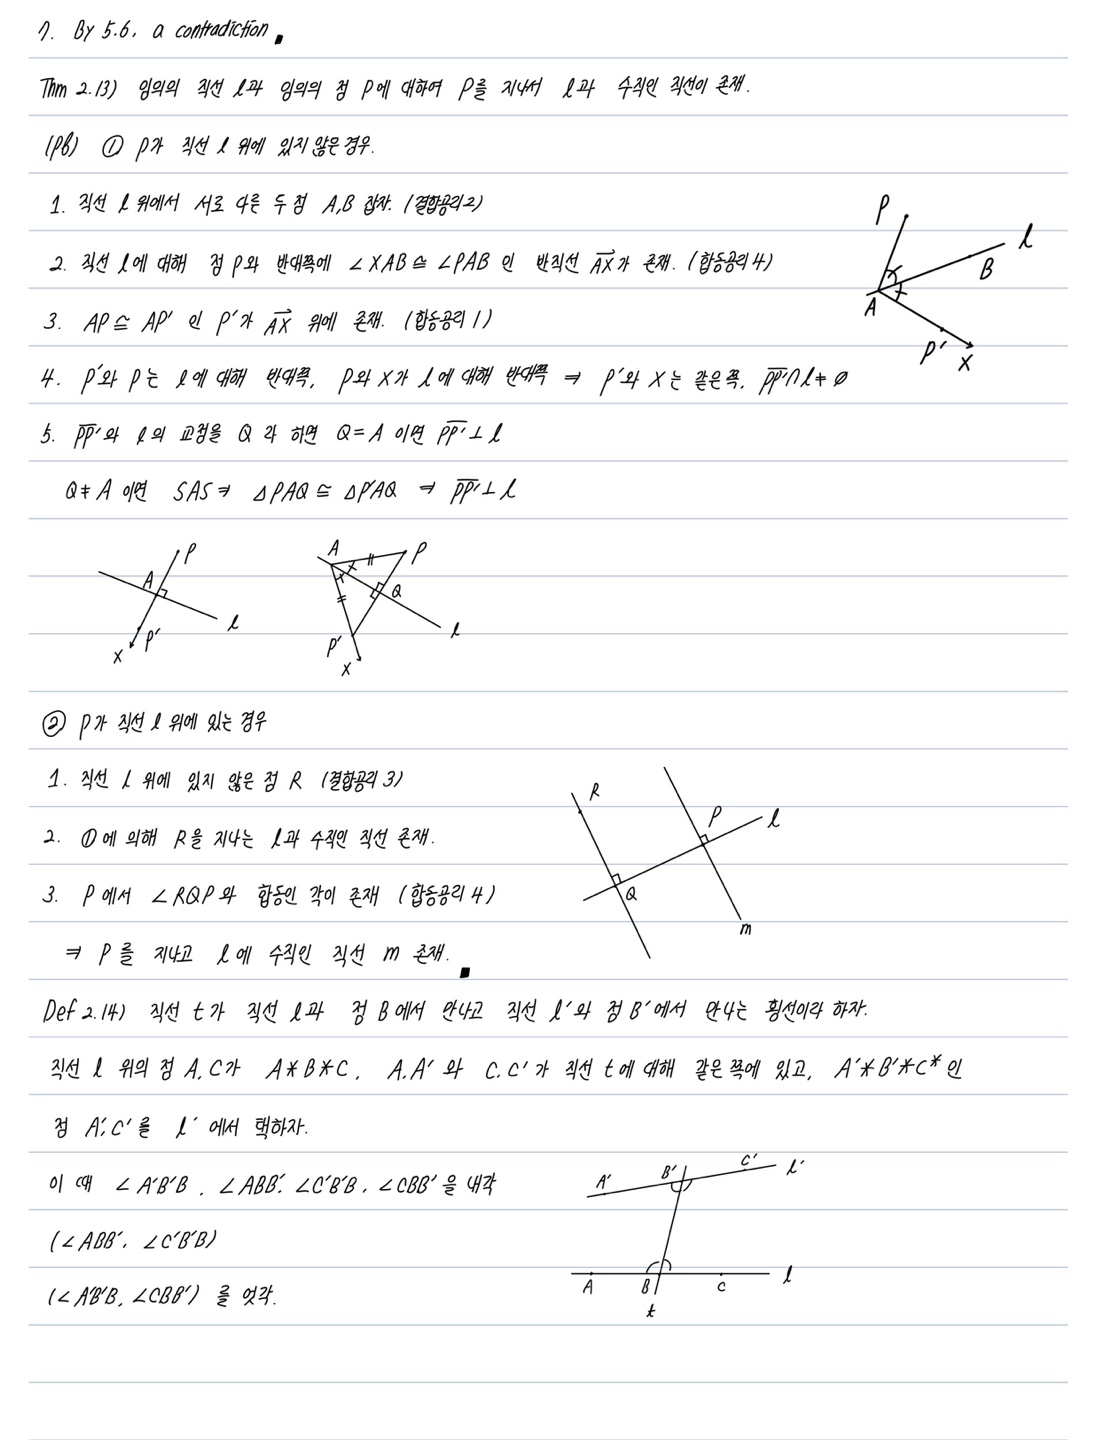 7. By 5.6, a contradiction ■
Thm 2.13) 임의의 직선 l과 임의의 점 P에 대하여 P를 지나서 l과 수직인 직선이 존재.
(pf) ① P가 직선 l 위에 있지 않은 경우.
1. 직선 l 위에서 서로 다른 두 점 A,B 잡자. (결합공리2)
2. 직선 l에 대해 점 P와 반대쪽에 ∠XAB≅∠PAB 인 반직선 AX→가 존재. (합동공리4)
3. AP≅AP′ 인 P′가 AX→ 위에 존재. (합동공리1)
P
l
B
A
P′
X
4. P′와 P는 l에 대해 반대쪽, P와 X가 l에 대해 반대쪽 ⇒ P′와 X는 같은쪽, PP′∩l≠∅
5. PP′와 l의 교점을 Q 라 하면 Q=A 이면 PP′⊥l
Q≠A 이면 SAS⇒ △PAQ≅△P′AQ ⇒ PP′⊥l
P
A
l
P′
X
A
P
Q
l
P′
X
② P가 직선 l 위에 있는 경우
1. 직선 l 위에 있지 않은 점 R (결합공리3)
2. ①에 의해 R을 지나는 l과 수직인 직선 존재.
3. P에서 ∠RQP와 합동인 각이 존재 (합동공리4)
⇒ P를 지나고 l에 수직인 직선 m 존재. ■
R
P
l
Q
m
Def 2.14) 직선 t가 직선 l과 점 B에서 만나고 직선 l′와 점 B′에서 만나는 횡선이라 하자.
직선 l 위의 점 A,C가 A*B*C, A,A′와 C,C′가 직선 t에 대해 같은 쪽에 있고, A′*B′*C* 인
점 A′,C′를 l′에서 택하자.
이 때 ∠A′B′B, ∠ABB′, ∠C′B′B, ∠CBB′을 내각
(∠ABB′, ∠C′B′B)
(∠A′B′B, ∠CBB′)를 엇각.
A′
B′
C′
l′
A
B
C
l
t